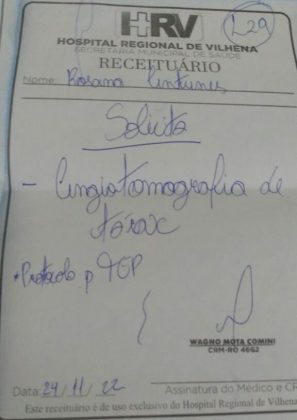 L29
HRV
HOSPITAL REGIONAL DE VILHENA
SECRETARIA MUNICIPAL DE SAÚDE
RECEITUÁRIO
Nome: Rosana Antunes
Solicito
- Angiotomografia de
tórax
* Protocolo p TEP
WAGNO MOTA COMINI
CRM-RO 4662
Data: 24/11/22 Assinatura do Médico e CR
Este receituário é de uso exclusivo do Hospital Regional de Vilhena